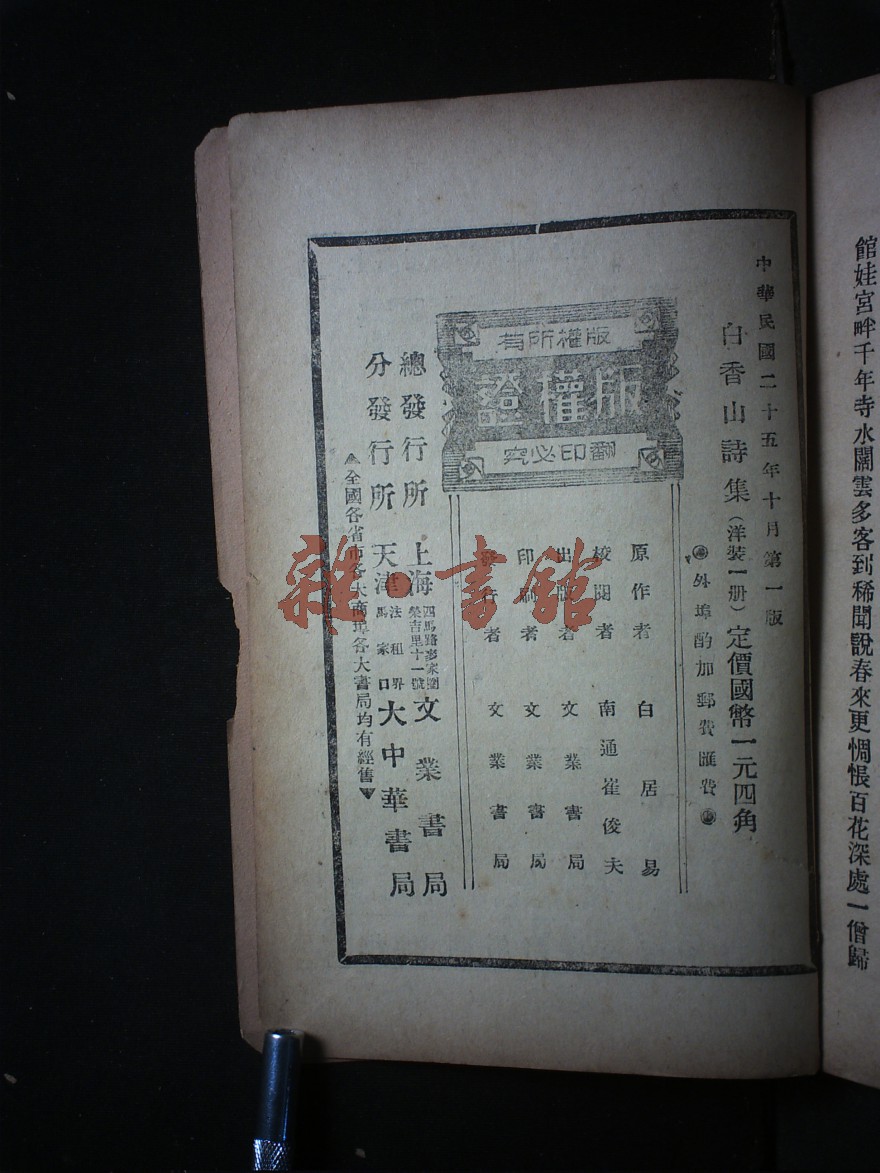 館娃宮畔千年寺水闊雲多客到稀聞說春來更惆悵百花深處一僧歸
中華民國二十五年十月第一版
白香山詩集（洋裝一册）定價國幣一元四角
外埠酌加郵費匯費
版權所有
版權證
翻印必究
原作者 白居易
校閱者 南通崔俊夫
出版者 文業書局
印刷者 文業書局
發行者 文業書局
總發行所 上海 四馬路麥家圈榮吉里十一號 文業書局
分發行所 天津 法租界馬家口 大中華書局
全國各省市各大商埠各大書局均有經售
雜·書館